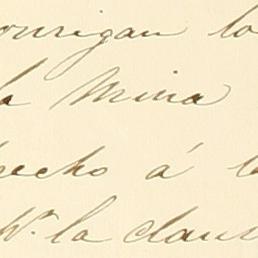 onsigan lo
la Mina
pecho á l
Nº la claus